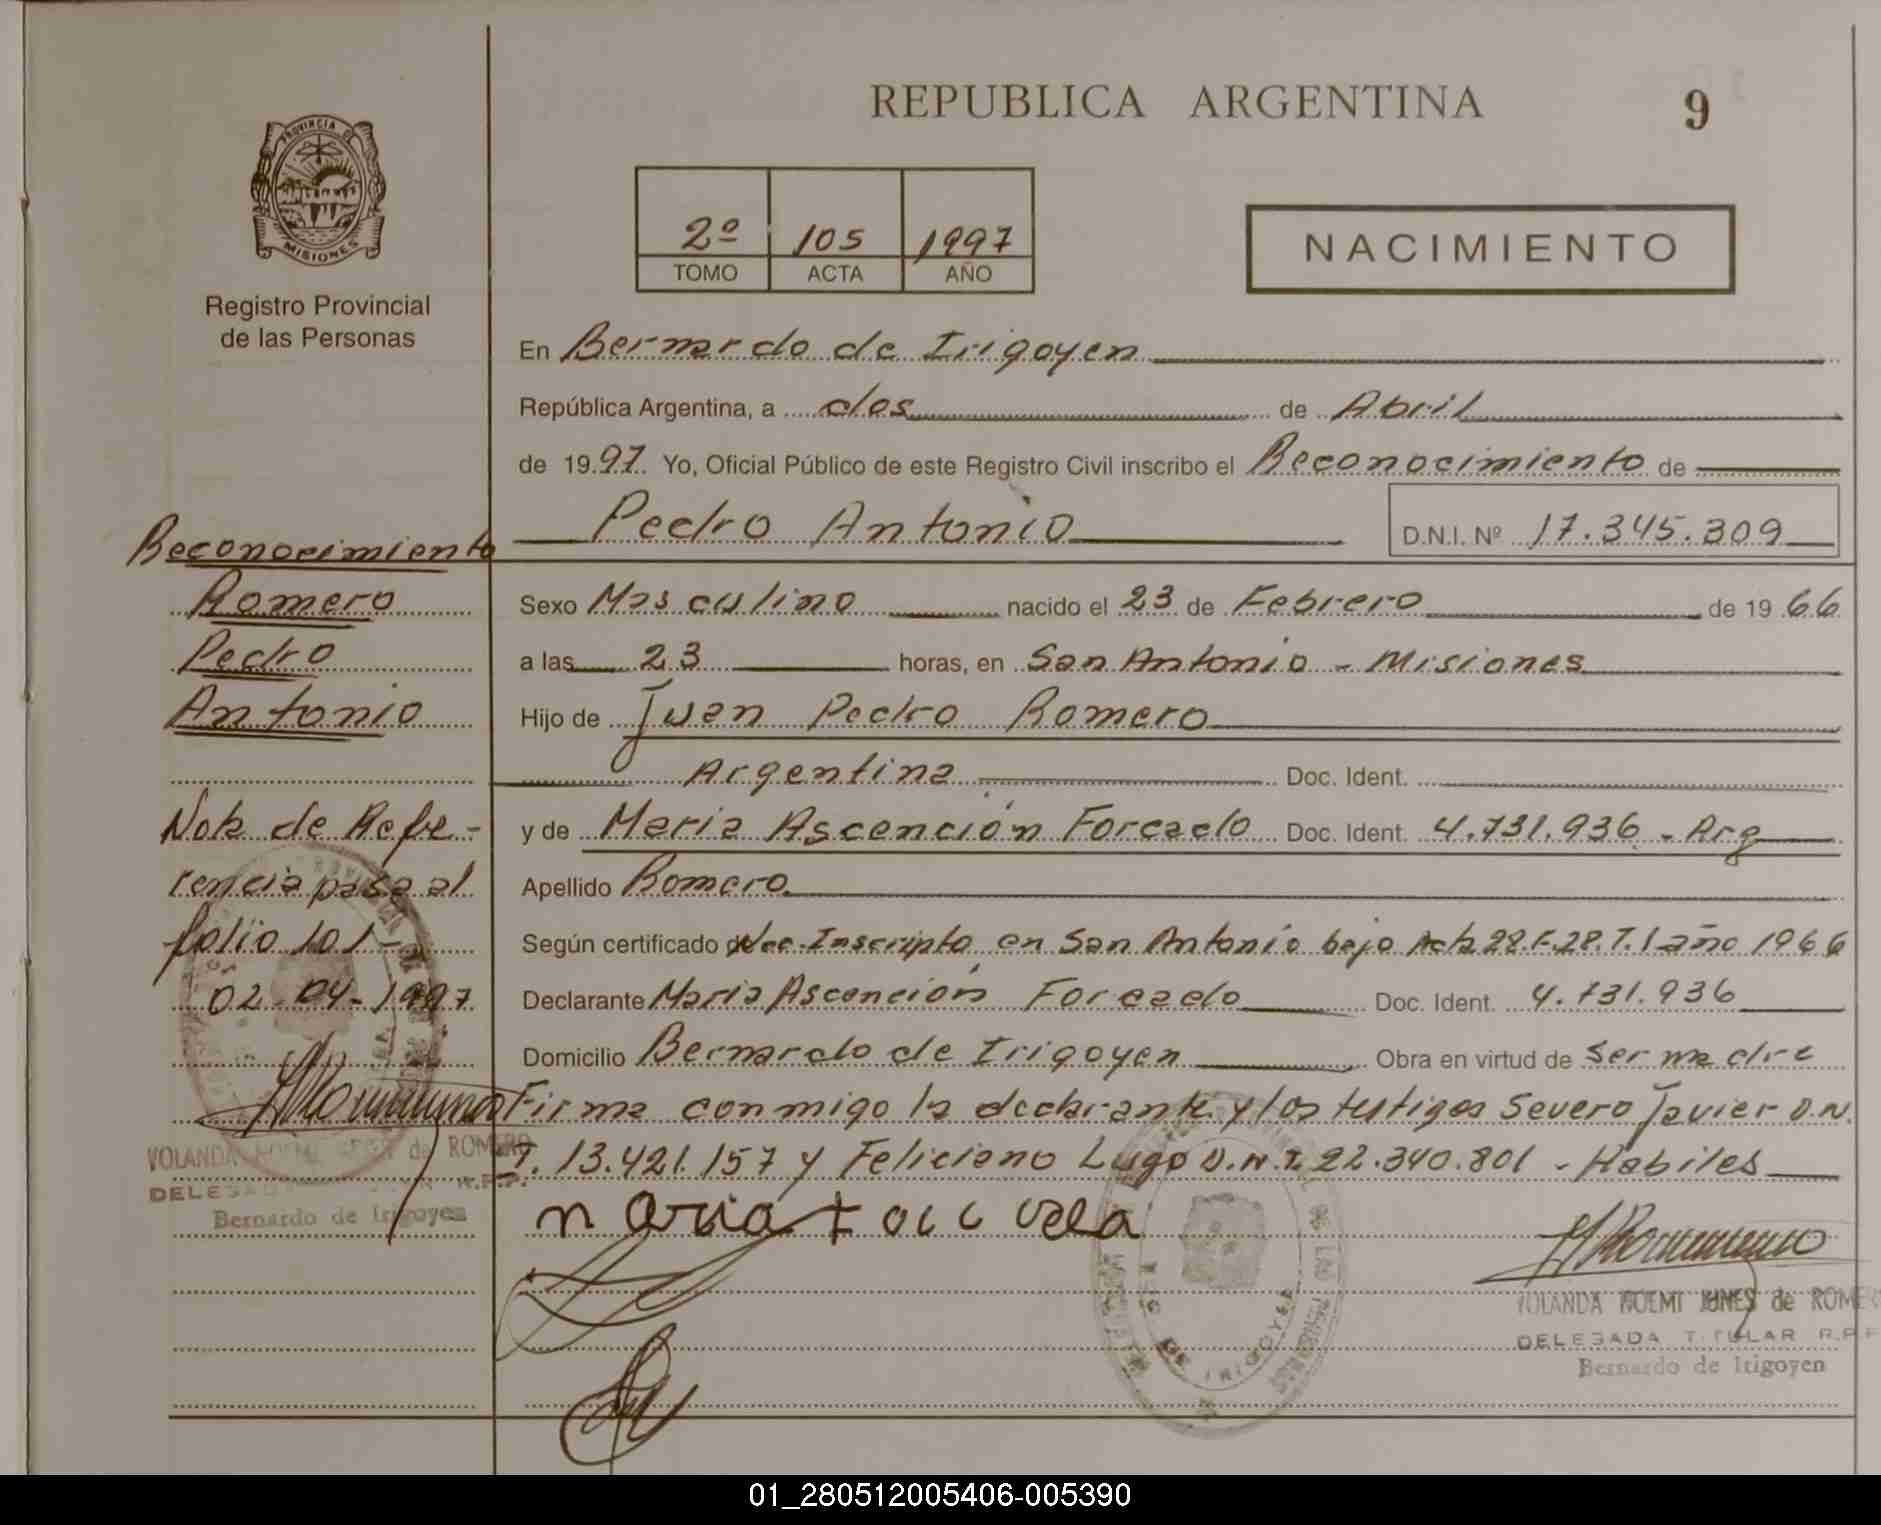 REPUBLICA ARGENTINA
9
PROVINCIA DE
MISIONES
Registro Provincial
de las Personas
2º 105 1997
TOMO ACTA AÑO
NACIMIENTO
En Bernardo de Irigoyen
República Argentina, a dos de Abril
de 1997. Yo, Oficial Público de este Registro Civil inscribo el Reconocimiento de
Pedro Antonio
D.N.I. Nº 17.345.309
Reconocimiento
Romero
Pedro
Antonio
Nota de Refe-
rencia pasa al
folio 101-
02-04-1997
YOLANDA NOEMI de ROMERO
R.P.P.
Bernardo de Irigoyen
Sexo Masculino nacido el 23 de Febrero de 1966
a las 23 horas, en San Antonio - Misiones
Hijo de Juan Pedro Romero
Argentina Doc. Ident.
y de Maria Ascención Forcado Doc. Ident. 4.731.936 - Arg
Apellido Romero
Según certificado de Nac. Inscripto en San Antonio bajo Acta 28.F.28.T.1 año 1966
Declarante Maria Ascención Forcado Doc. Ident. 4.731.936
Domicilio Bernardo de Irigoyen Obra en virtud de ser madre
Firma conmigo la declarante y los testigos Severo Javier D.N.
I. 13.421.157 y Feliciano Lugo D.N.I. 22.340.801 - Habiles
maria
YOLANDA NOEMI JUNES de ROMER
DELEGADA TITULAR R.P.P
Bernardo de Irigoyen
DE IRIGOYEN
01_280512005406-005390